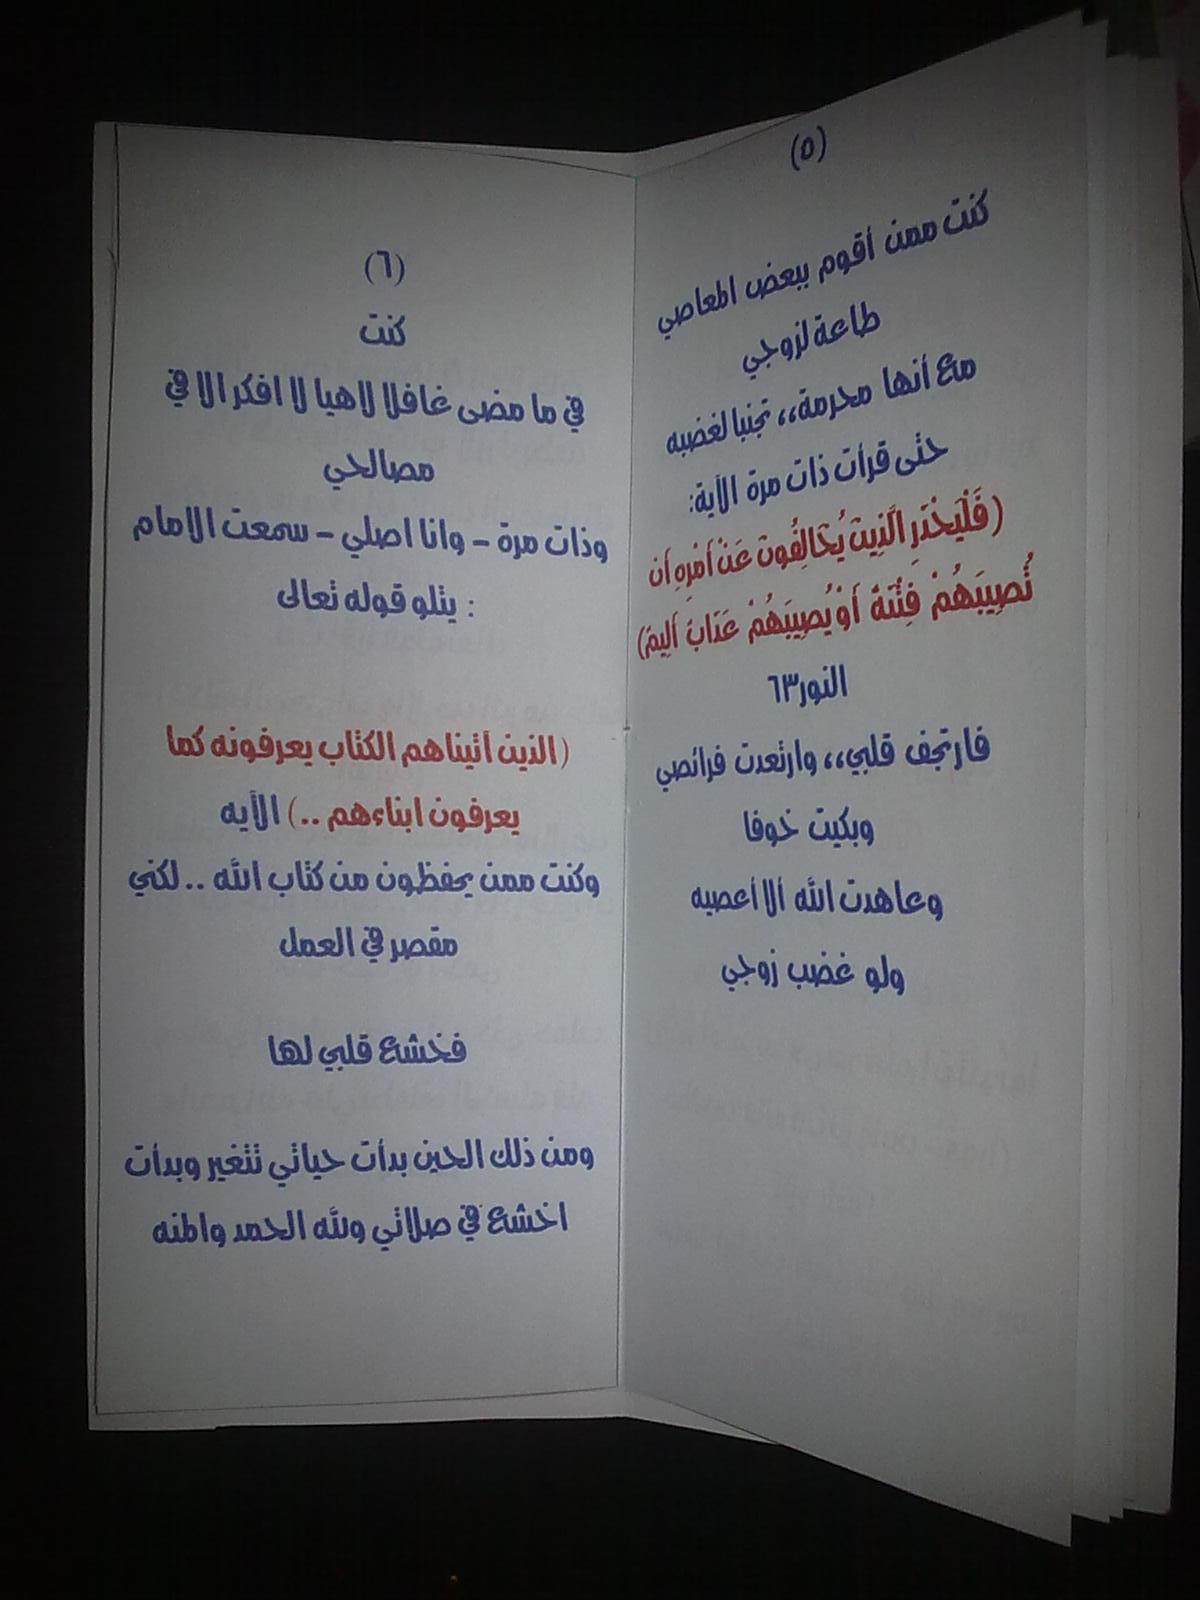 (٥)
كنت ممن أقوم ببعض المعاصي
طاعة لزوجي
مع أنها محرمة،، تجنبا لغضبه
حتى قرأت ذات مرة الأية:
(فَلْيَحْذَرِ الَّذِينَ يُخَالِفُونَ عَنْ أَمْرِهِ أَن
تُصِيبَهُمْ فِتْنَةٌ أَوْ يُصِيبَهُمْ عَذَابٌ أَلِيمٌ)
النور٦٣
فارتجف قلبي،، وارتعدت فرائصي
وبكيت خوفا
وعاهدت الله ألا أعصيه
ولو غضب زوجي
(٦)
كنت
في ما مضى غافلا لاهيا لا افكر الا في
مصالحي
وذات مرة – وانا اصلي – سمعت الامام
يتلو قوله تعالى :
(الذين أتيناهم الكتاب يعرفونه كما
يعرفون ابناءهم ..) الأيه
وكنت ممن يحفظون من كتاب الله .. لكني
مقصر في العمل
فخشع قلبي لها
ومن ذلك الحين بدأت حياتي تتغير وبدأت
اخشع في صلاتي ولله الحمد والمنه